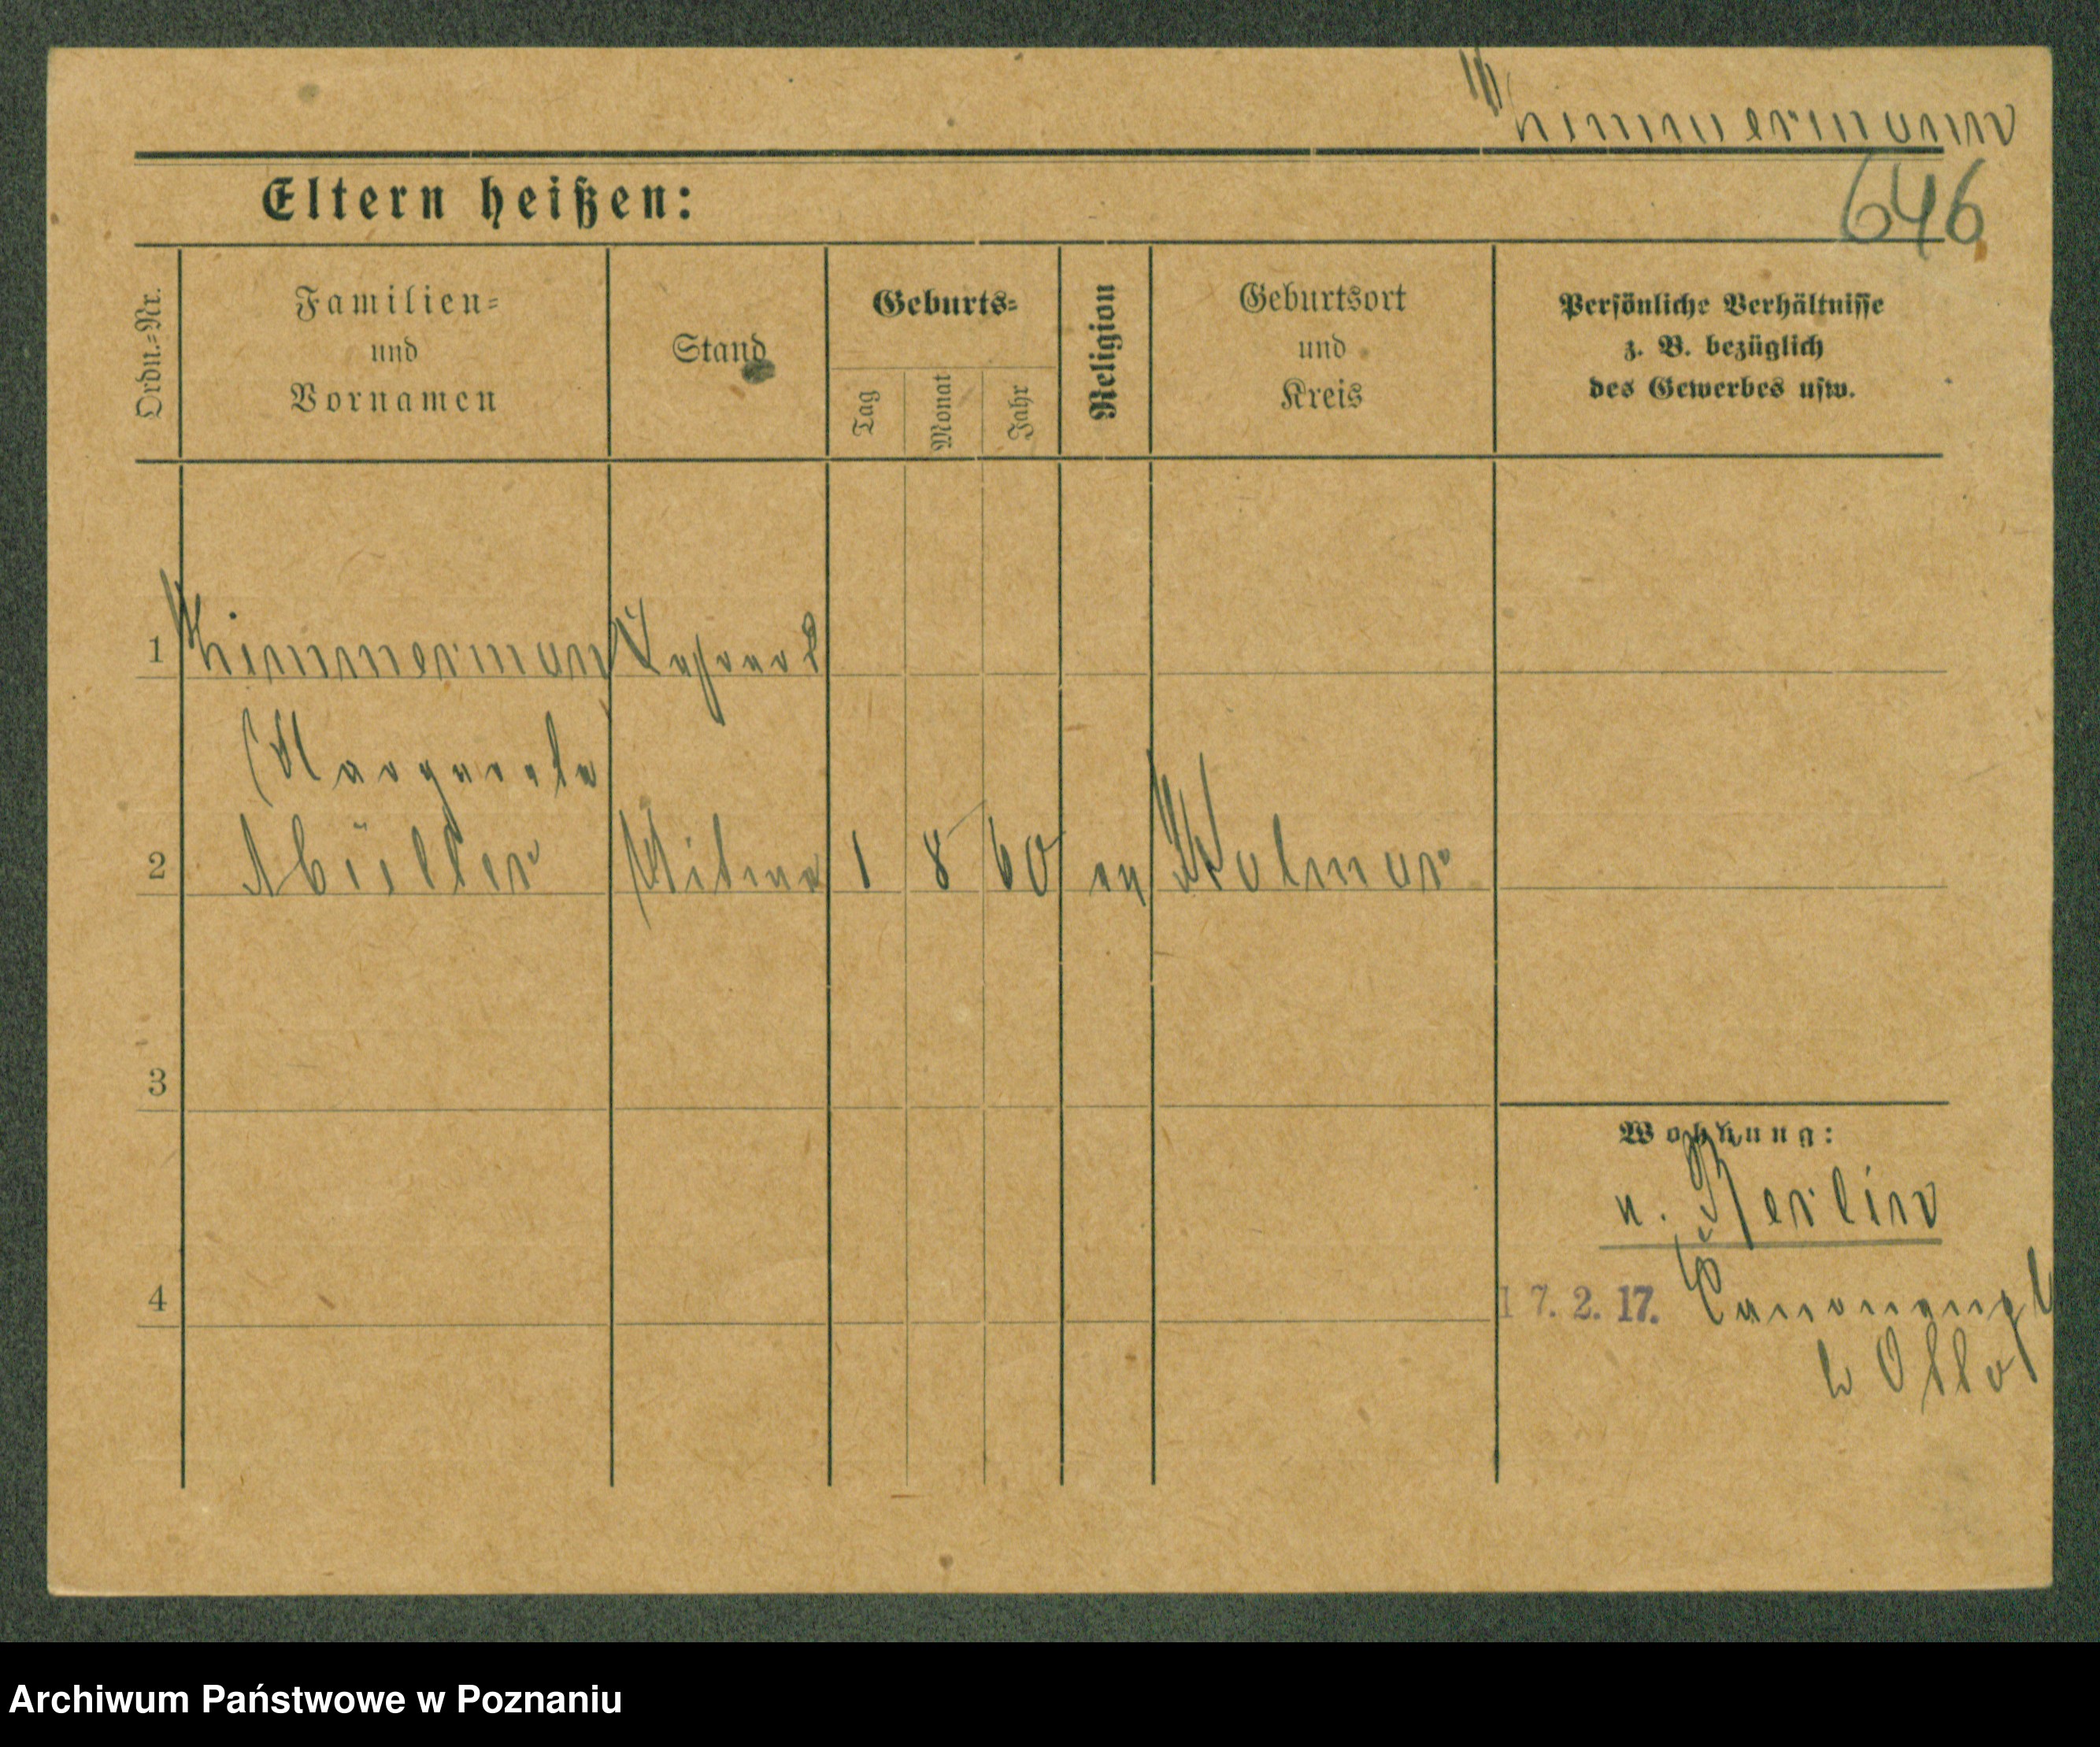 Zimmermann
646
Eltern heißen:
Ordn.=Nr.
Familien=
und
Vornamen
Stand
Geburts=
Tag
Monat
Jahr
Religion
Geburtsort
und
Kreis
Persönliche Verhältnisse
z. B. bezüglich
des Gewerbes usw.
1 Zimmermann
Margarete
2 Müller Witwe 1 8 60 ev Kolmar
3
Wohnung:
n. Berlin
4
17. 2. 17.
b Otto
Archiwum Państwowe w Poznaniu